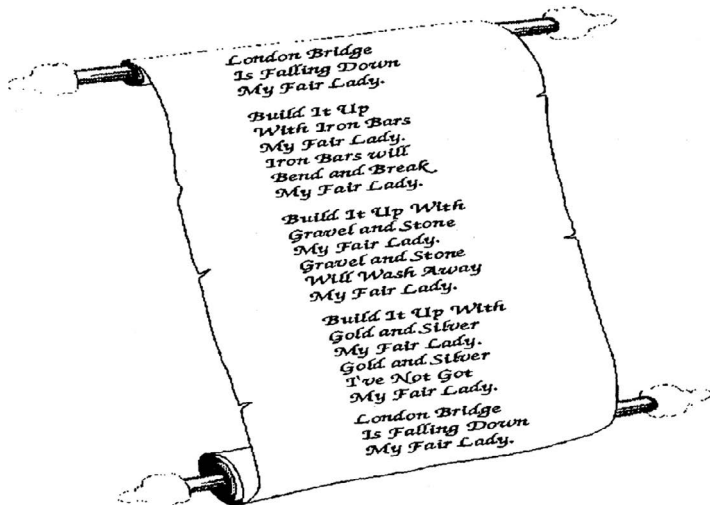 London Bridge
Is Falling Down
My Fair Lady.
Build It Up
With Iron Bars
My Fair Lady.
Iron Bars will
Bend and Break
My Fair Lady.
Build It Up With
Gravel and Stone
My Fair Lady.
Gravel and Stone
Will Wash Away
My Fair Lady.
Build It Up With
Gold and Silver
My Fair Lady.
Gold and Silver
I've Not Got
My Fair Lady.
London Bridge
Is Falling Down
My Fair Lady.